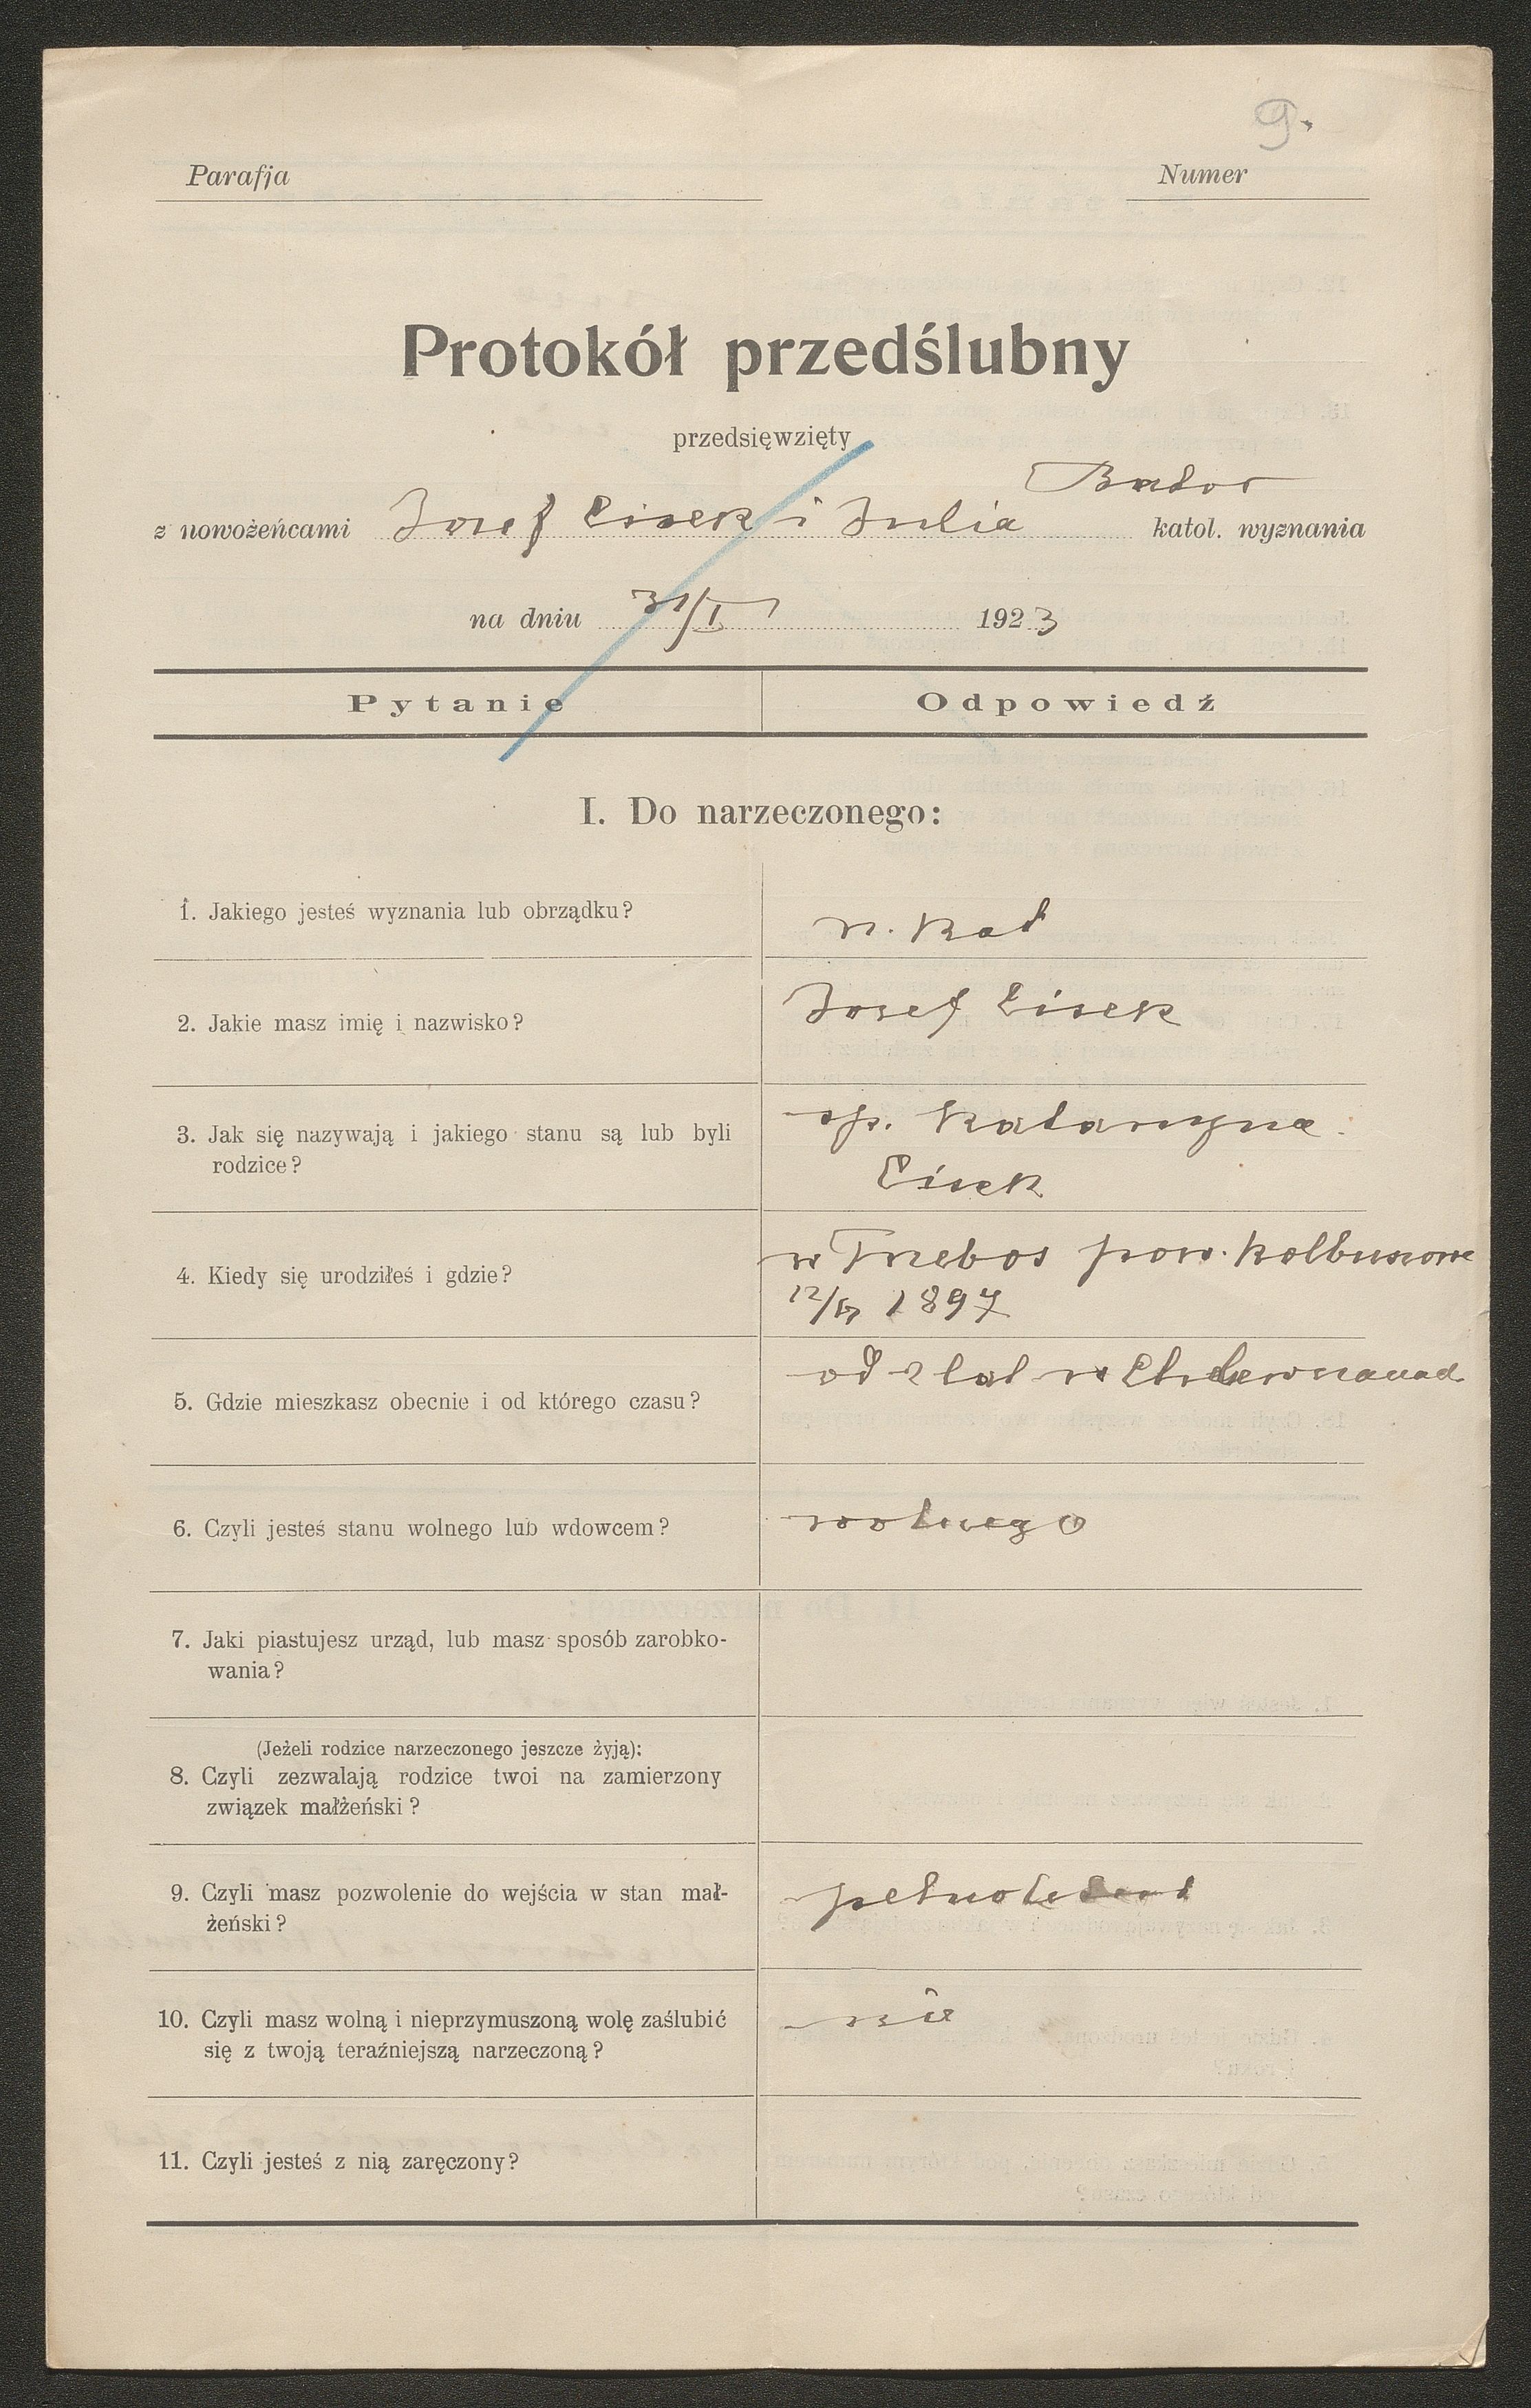 9.
Parafja
Numer
Protokół przedślubny
przedsięwzięty
Bador
z nowożeńcami Josef Cisek i Julia katol. wyznania
na dniu 31/I 1923
Pytanie Odpowiedź
I. Do narzeczonego:
1. Jakiego jesteś wyznania lub obrządku?
r. kat
2. Jakie masz imię i nazwisko?
Josef Cisek
3. Jak się nazywają i jakiego stanu są lub byli
rodzice?
śp. Katarzyna
Cisek
4. Kiedy się urodziłeś i gdzie?
w Trzebos pow. Kolbuszowe
1897
5. Gdzie mieszkasz obecnie i od którego czasu?
od 2 lat w
6. Czyli jesteś stanu wolnego lub wdowcem?
wolnego
7. Jaki piastujesz urząd, lub masz sposób zarobko-
wania?
(Jeżeli rodzice narzeczonego jeszcze żyją):
8. Czyli zezwalają rodzice twoi na zamierzony
związek małżeński?
9. Czyli masz pozwolenie do wejścia w stan mał-
żeński?
10. Czyli masz wolną i nieprzymuszoną wolę zaślubić
się z twoją teraźniejszą narzeczoną?
11. Czyli jesteś z nią zaręczony?